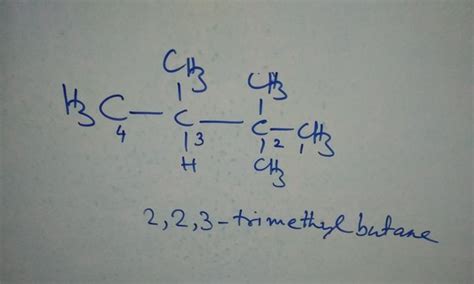 CH3 CH3
H3C—C—C—CH3
4 3 2 1
H CH3
2,2,3-trimethylbutane